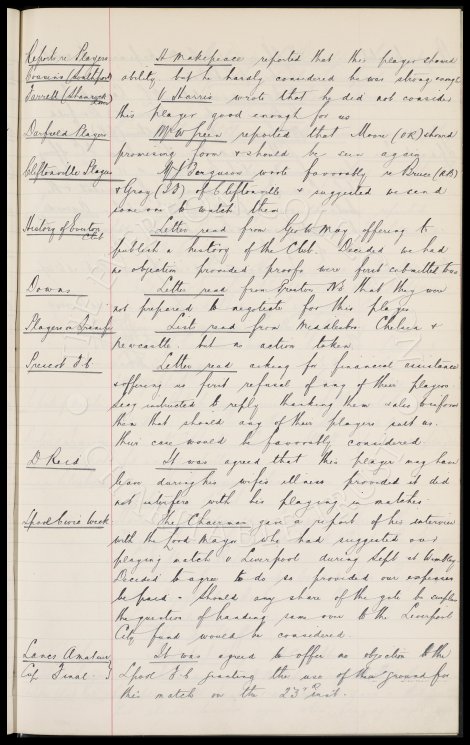 Reports re Players H Makepeace reported that this player showed
Cousins (Southport) ability but he hardly considered he was strong enough
Farrell (Shamrock) V Harris wrote that he did not consider
this player good enough for us
Darfield Players Mr W Green reported that Moore (OR) showed
promising form & should be seen again
Cliftonville Players Mr J Ferguson wrote favourably re Bruce (RB)
& Gray (LB) of Cliftonville & suggested we send
some one to watch them.
History of Everton Club Letter read from Geo W May offering to
publish a history of the Club. Decided we had
no objection provided proofs were first submitted to us
Downs Letter read from Preston N.E that they were
not prepared to negotiate for this player
Players on Transfer List read from Middlesbro Chelsea &
Newcastle. but no action taken
Prescot F.C. Letter read asking for financial assistance
& offering us first refusal of any of their players.
Secy instructed to reply thanking them & also inform
them that should any of their players suit us.
their case would be favourably considered.
D Reid It was agreed that this player may have
leave during his wife's illness provided it did
not interfere with his playing in matches.
Lpool Civic Week The Chairman gave a report of his interview
with the Lord Mayor who had suggested our
playing match v Liverpool during Sept at Wembley.
Decided to agree to do so provided our expenses
be paid & should any share of the gate be
the question of handing same over to the Liverpool
City fund would be considered.
Lancs Amateur It was agreed to offer no objection to the
Cup Final. Lpool F.C granting the use of their ground for
this match on the 23rd inst.